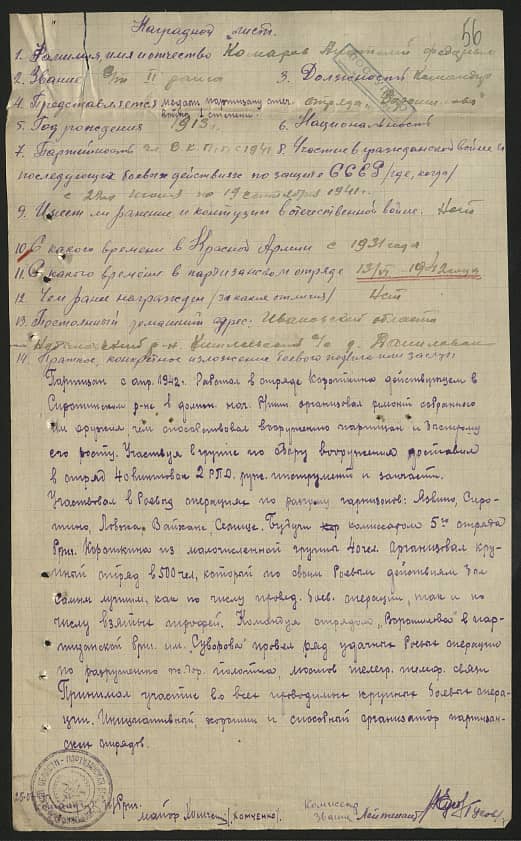 56
Наградной лист.
1. Фамилия, имя и отчество Комаров Анатолий Федорович
2. Звание в/т II ранга 3. Должность Командир
4. Представляется медали партизану отеч. войны I степени отряда "Ворошилова"
5. Год рождения 1913 г. 6. Национальность
7. Партийность чл. В.К.П./б с 1941 8. Участие в гражданской войне и
последующих боевых действиях по защите СССР /где, когда/
с 22го июня по 19 сентября 1941 г.
9. Имеет ли ранение и контузии в отечественной войне. Нет
10. С какого времени в Красной Армии с 1931 года
11. С какого времени в партизанском отряде 13/VI 1942 года
12. Чем ранее награжден /за какие отличия/ Нет
13. Постоянный домашний адрес: Ивановской области
р-н, с/с д.
14. Краткое, конкретное изложение боевого подвига или заслуг
Партизан с апр. 1942г. Работал в отряде Короткина действующем в
Сиротинском р-не в должн. нач. организовал ремонт собранного
им оружия чем способствовал вооружению партизан и быстрому
его росту. Участвуя в группе по сбору вооружения доставил
в отряд 40 винтовок 2 РПД. руж. инструмент и запчасти.
Участвовал в боевых операциях по разгрому гарнизонов: Язвино, Сиро-
тино, Ловжа Войханы Селище. Будучи комиссаром 5го отряда
бриг. Короткина из малочисленной группы 40 чел. организовал кру-
пный отряд в 500 чел, который по своим боевым действиям был
самым лучшим, как по числу провед. боев. операций, так и по
числу взятых трофей. Командуя отрядом "Ворошилова" в пар-
тизанской бриг. им. "Суворова" провел ряд удачных боевых операций
по разрушению ж.дор. полотна, мостов телегр. телеф. связи
Принимал участие во всех проводимых крупных боевых опера-
ции. Инициативный, хороший и способный организатор партизан-
ских отрядов.
бриг.
майор /Хомченко/
Комиссар
Звание Лейтенант /Гусов/